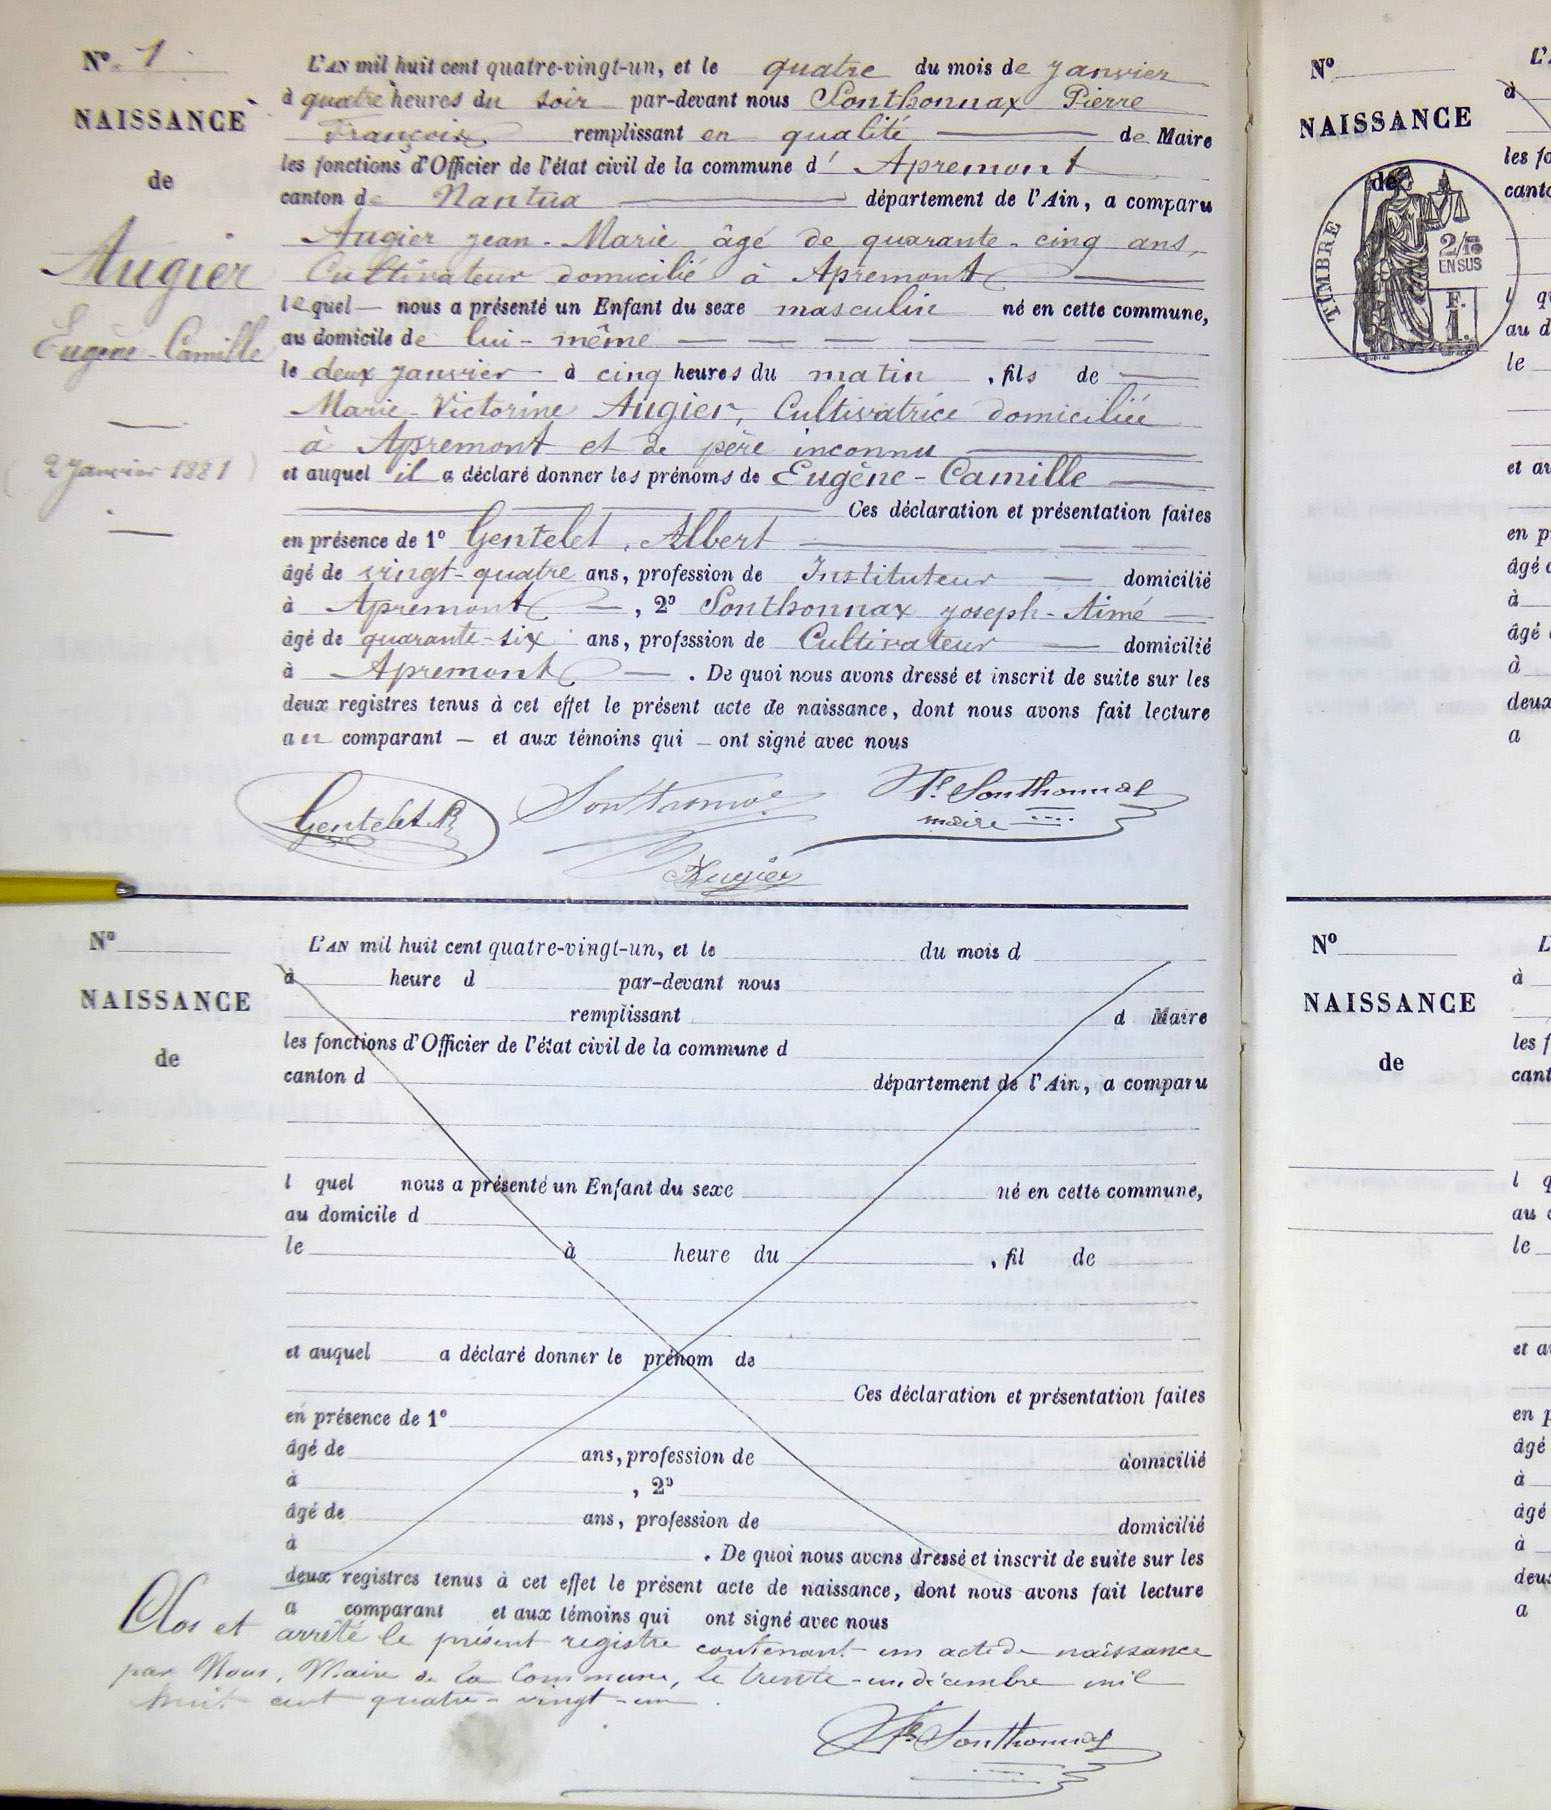 N° 1
NAISSANCE
de
Augier
Eugène-Camille
(2 Janvier 1881)
L'AN mil huit cent quatre-vingt-un, et le quatre du mois de Janvier
à quatre heures du soir par-devant nous Sonthonnax Pierre
François remplissant en qualité de Maire
les fonctions d'Officier de l'état civil de la commune d' Apremont
canton de Nantua département de l'Ain, a comparu
Augier Jean-Marie âgé de quarante-cinq ans,
Cultivateur domicilié à Apremont
lequel nous a présenté un Enfant du sexe masculin né en cette commune,
au domicile de lui-même
le deux Janvier à cinq heures du matin, fils de
Marie-Victorine Augier, Cultivatrice domiciliée
à Apremont et de père inconnu
et auquel il a déclaré donner les prénoms de Eugène-Camille
Ces déclaration et présentation faites
en présence de 1° Gentelet, Albert
âgé de vingt-quatre ans, profession de Instituteur domicilié
à Apremont, 2° Sonthonnax Joseph-Aimé
âgé de quarante-six ans, profession de Cultivateur domicilié
à Apremont. De quoi nous avons dressé et inscrit de suite sur les
deux registres tenus à cet effet le présent acte de naissance, dont nous avons fait lecture
au comparant et aux témoins qui ont signé avec nous
Gentelet Sonthonnax Sonthonnax
maire
Augier
N°
NAISSANCE
de
L'AN mil huit cent quatre-vingt-un, et le du mois d
à heure d par-devant nous
remplissant d Maire
les fonctions d'Officier de l'état civil de la commune d
canton d département de l'Ain, a comparu
l quel nous a présenté un Enfant du sexe né en cette commune,
au domicile d
le à heure du , fil de
et auquel a déclaré donner le prénom de
Ces déclaration et présentation faites
en présence de 1°
âgé de ans, profession de domicilié
à , 2°
âgé de ans, profession de domicilié
à . De quoi nous avons dressé et inscrit de suite sur les
deux registres tenus à cet effet le présent acte de naissance, dont nous avons fait lecture
a comparant et aux témoins qui ont signé avec nous
Clos et arrêté le présent registre contenant un acte de naissance
par Nous, Maire de la Commune, le trente-un décembre mil
huit cent quatre-vingt-un.
Sonthonnax
N°
NAISSANCE
de
TIMBRE
2/10
EN SUS
F.
1.
L'
à
les fo
canto
l q
au d
le
et au
en p
âgé d
à
âgé
à
deux
a
N°
NAISSANCE
de
L
à
les f
cant
l q
au d
le
et a
en p
âgé
à
âgé
à
deux
a